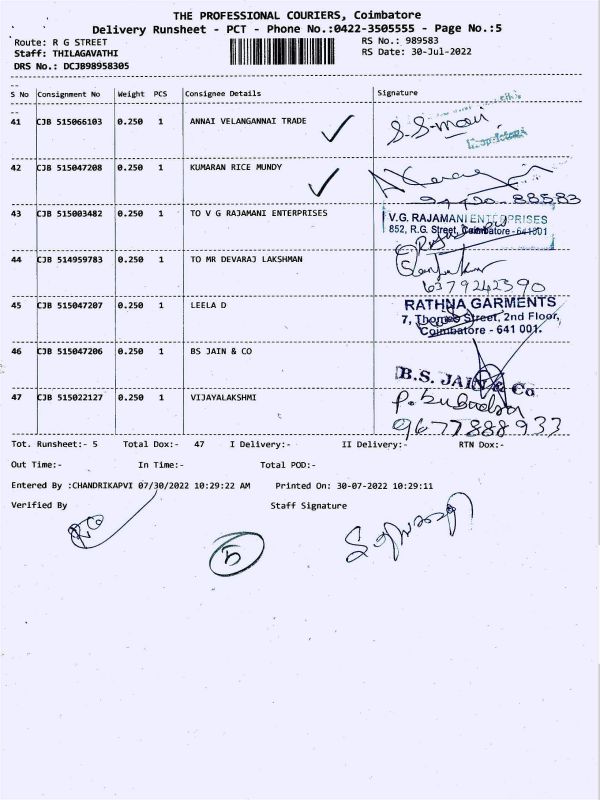 THE PROFESSIONAL COURIERS, Coimbatore
Delivery Runsheet - PCT - Phone No.:0422-3505555 - Page No.:5
Route: R G STREET
RS No.: 989583
Staff: THILAGAVATHI
RS Date: 30-Jul-2022
DRS No.: DCJB98958305
S No Consignment No Weight PCS Consignee Details Signature
41 CJB 515066103 0.250 1 ANNAI VELANGANNAI TRADE
S-S-mani
42 CJB 515047208 0.250 1 KUMARAN RICE MUNDY
88583
43 CJB 515003482 0.250 1 TO V G RAJAMANI ENTERPRISES
V.G. RAJAMANI ENTERPRISES
852, R.G. Street, Coimbatore - 641001
44 CJB 514959783 0.250 1 TO MR DEVARAJ LAKSHMAN
6379242390
45 CJB 515047207 0.250 1 LEELA D
RATHNA GARMENTS
7, Thomas Street, 2nd Floor,
Coimbatore - 641 001.
46 CJB 515047206 0.250 1 BS JAIN & CO
B.S. JAIN & Co
47 CJB 515022127 0.250 1 VIJAYALAKSHMI
9677888933
Tot. Runsheet:- 5 Total Dox:- 47 I Delivery:- II Delivery:- RTN Dox:-
Out Time:- In Time:- Total POD:-
Entered By :CHANDRIKAPVI 07/30/2022 10:29:22 AM Printed On: 30-07-2022 10:29:11
Verified By Staff Signature
5